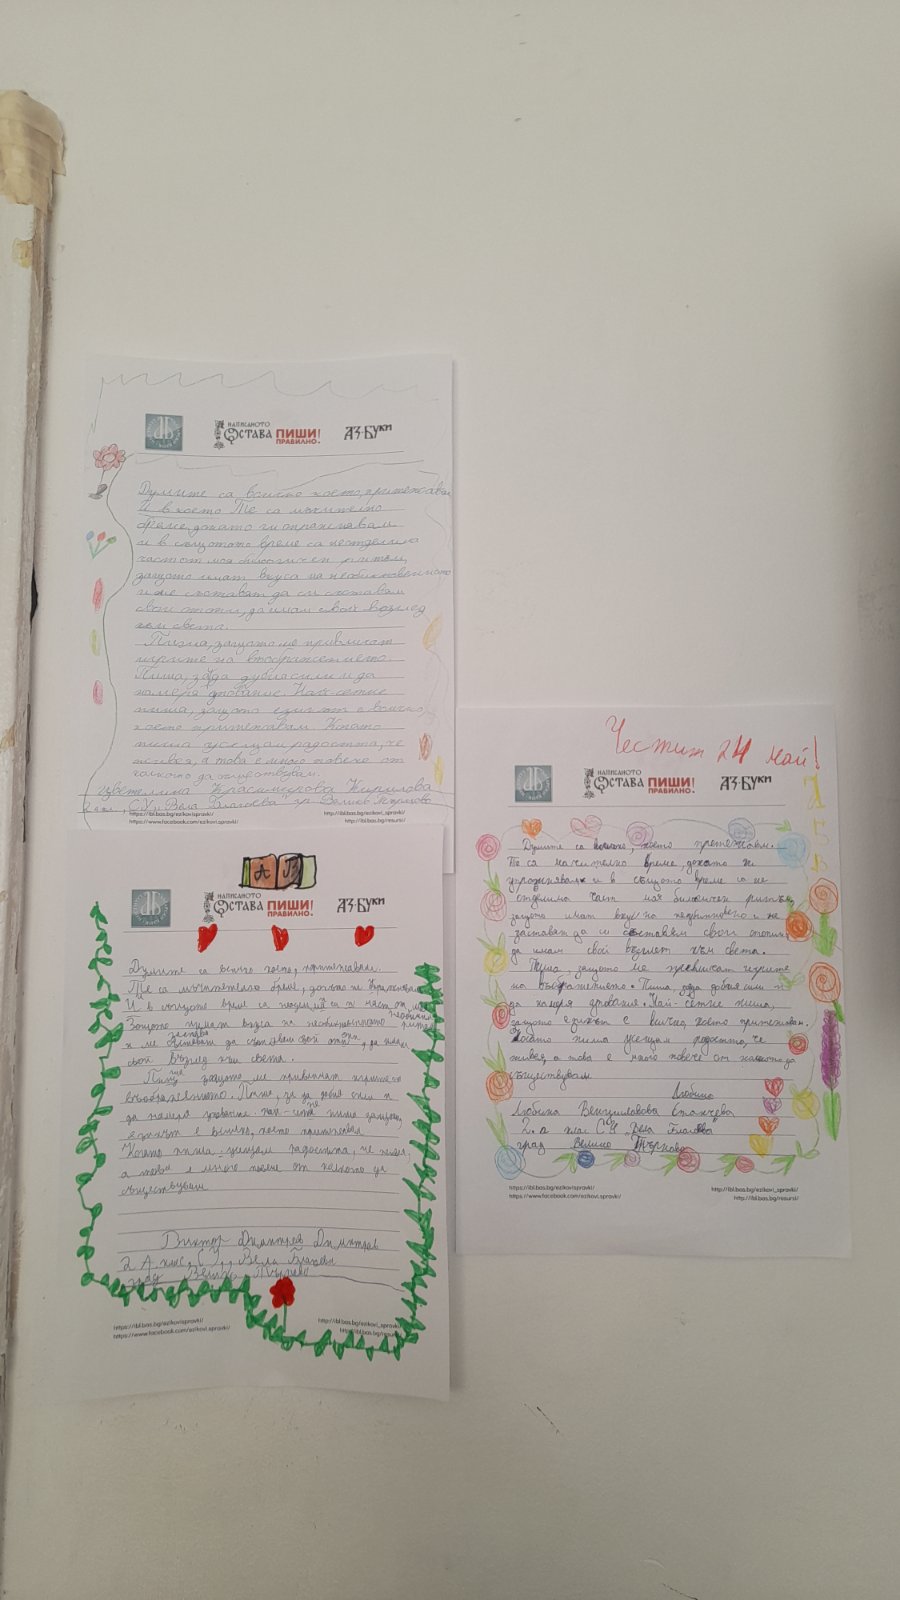 НАПИСАНОТО
ОСТАВА ПИШИ!
ПРАВИЛНО.
АЗ-БУКИ
Думите са всичко което, притежавам
И в което Те са мъчително
време, докато ги упражнявам
и в същото време са неотделима
част от моя биологичен ритъм,
защото имат вкуса на необикновеното
и ме заставят да си съставям
свои стопи, да имам свой възглед
към света.
Пиша, защото ме привличат
игрите на въображението.
Пиша, за да добия сили и да
намеря упование. Най-сетне
пиша, защото езикът е всичко,
което притежавам. Когато
пиша усещам радостта, че
живея, а това е много повече от
колкото да съществувам.
Цветелина Красимирова Кирилова
2 а кл., СУ „Вела Благоева" гр. Велико Търново
https://ibl.bas.bg/ezikovispravki/
http://ibl.bas.bg/ezikovi_spravki/
https://www.facebook.com/ezikovi.spravki/
http://ibl.bas.bg/resursi/
А Б
НАПИСАНОТО
ОСТАВА ПИШИ!
ПРАВИЛНО.
АЗ-БУКИ
Думите са всичко което, притежавам.
Те са мъчително време, докато ги упражнявам
И в същото време са част от моя
Защото имат вкуса на необикновеното
и ме заставят да съставям свой стопи, да имам
свой възглед към света.
Пиша защото ме привличат игрите на
въображението. Пиша, за да добия сили и
да намеря упование Най-сетне пиша защото,
езикът е всичко, което притежавам
Когато пиша усещам радостта, че живея,
а това е много повече от колкото да
съществувам
Виктор Димитров Димитров
2 А клас, СУ „Вела Благоева
град Велико Търново
https://ibl.bas.bg/ezikovispravki/
http://ibl.bas.bg/ezikovi_spravki/
https://www.facebook.com/ezikovi.spravki/
http://ibl.bas.bg/resursi/
Честит 24 май!
НАПИСАНОТО
ОСТАВА ПИШИ!
ПРАВИЛНО.
АЗ-БУКИ
Думите са всичко, което претежавам.
Те са мъчително време, докато ги
упражнявам и в същото време са не
отделима част моя биологичен ритъм,
защото имат вкус на и ме
заставят да си съставям свои стопи
да имам свой възглет към света.
Пиша, защото ме превличат игрите
на въображението. Пиша за да добия сили и
да намеря упование. Най-сетне пиша,
защото езикът е всичко, което притежавам.
Когато пиша усещам радостта, че
живея, а това е много повече от колкото да
съществувам
Любина
Любина Венциславова Станчева
2. а клас СУ „Вела Благоева"
град Велико Търново
https://ibl.bas.bg/ezikovispravki/
http://ibl.bas.bg/ezikovi_spravki/
https://www.facebook.com/ezikovi.spravki/
http://ibl.bas.bg/resursi/